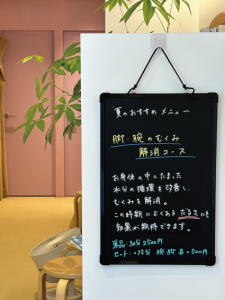 夏のおすすめ メニュー
脚・腕のむくみ
解消コース
お身体の中にたまった
水分の循環を改善し、
むくみを解消。
この時期によくあるだるさにも
効果が期待できます。
単品:30分2500円
セット:+15分 腕 脚 各+500円